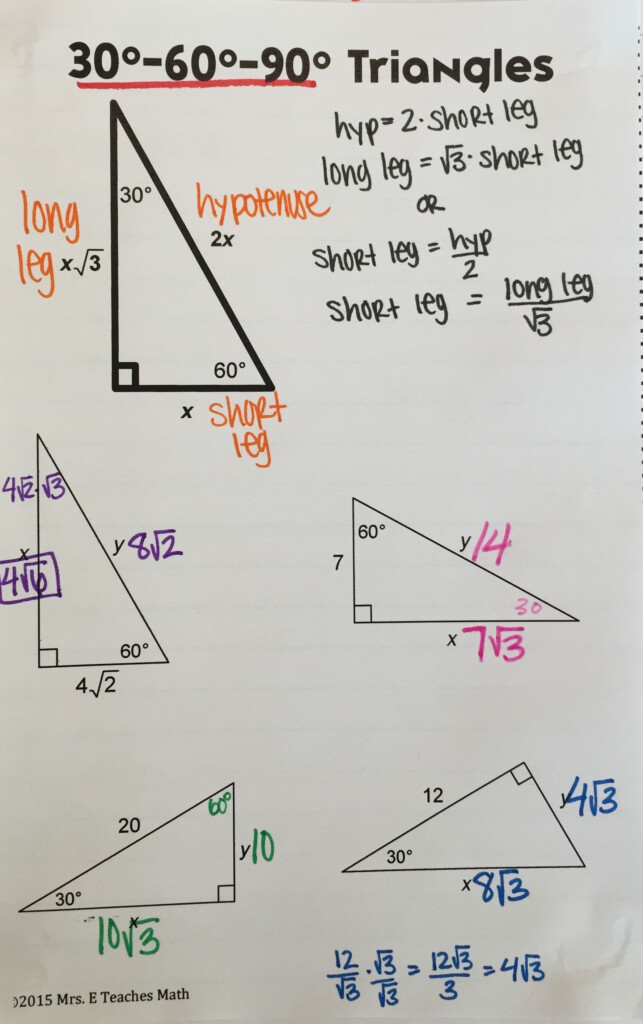 30°-60°-90° Triangles
hyp = 2 · short leg
long leg = √3 · short leg
OR
short leg = hyp/2
short leg = long leg/√3
30°
long
leg
x√3
hypotenuse
2x
60°
x
short
leg
4√2·√3
x
4√6
y 8√2
60°
4√2
60°
7
y 14
30
x 7√3
20
60°
y 10
30°
x
10√3
12
y 4√3
30°
x 8√3
12/√3 · √3/√3 = 12√3/3 = 4√3
©2015 Mrs. E Teaches Math